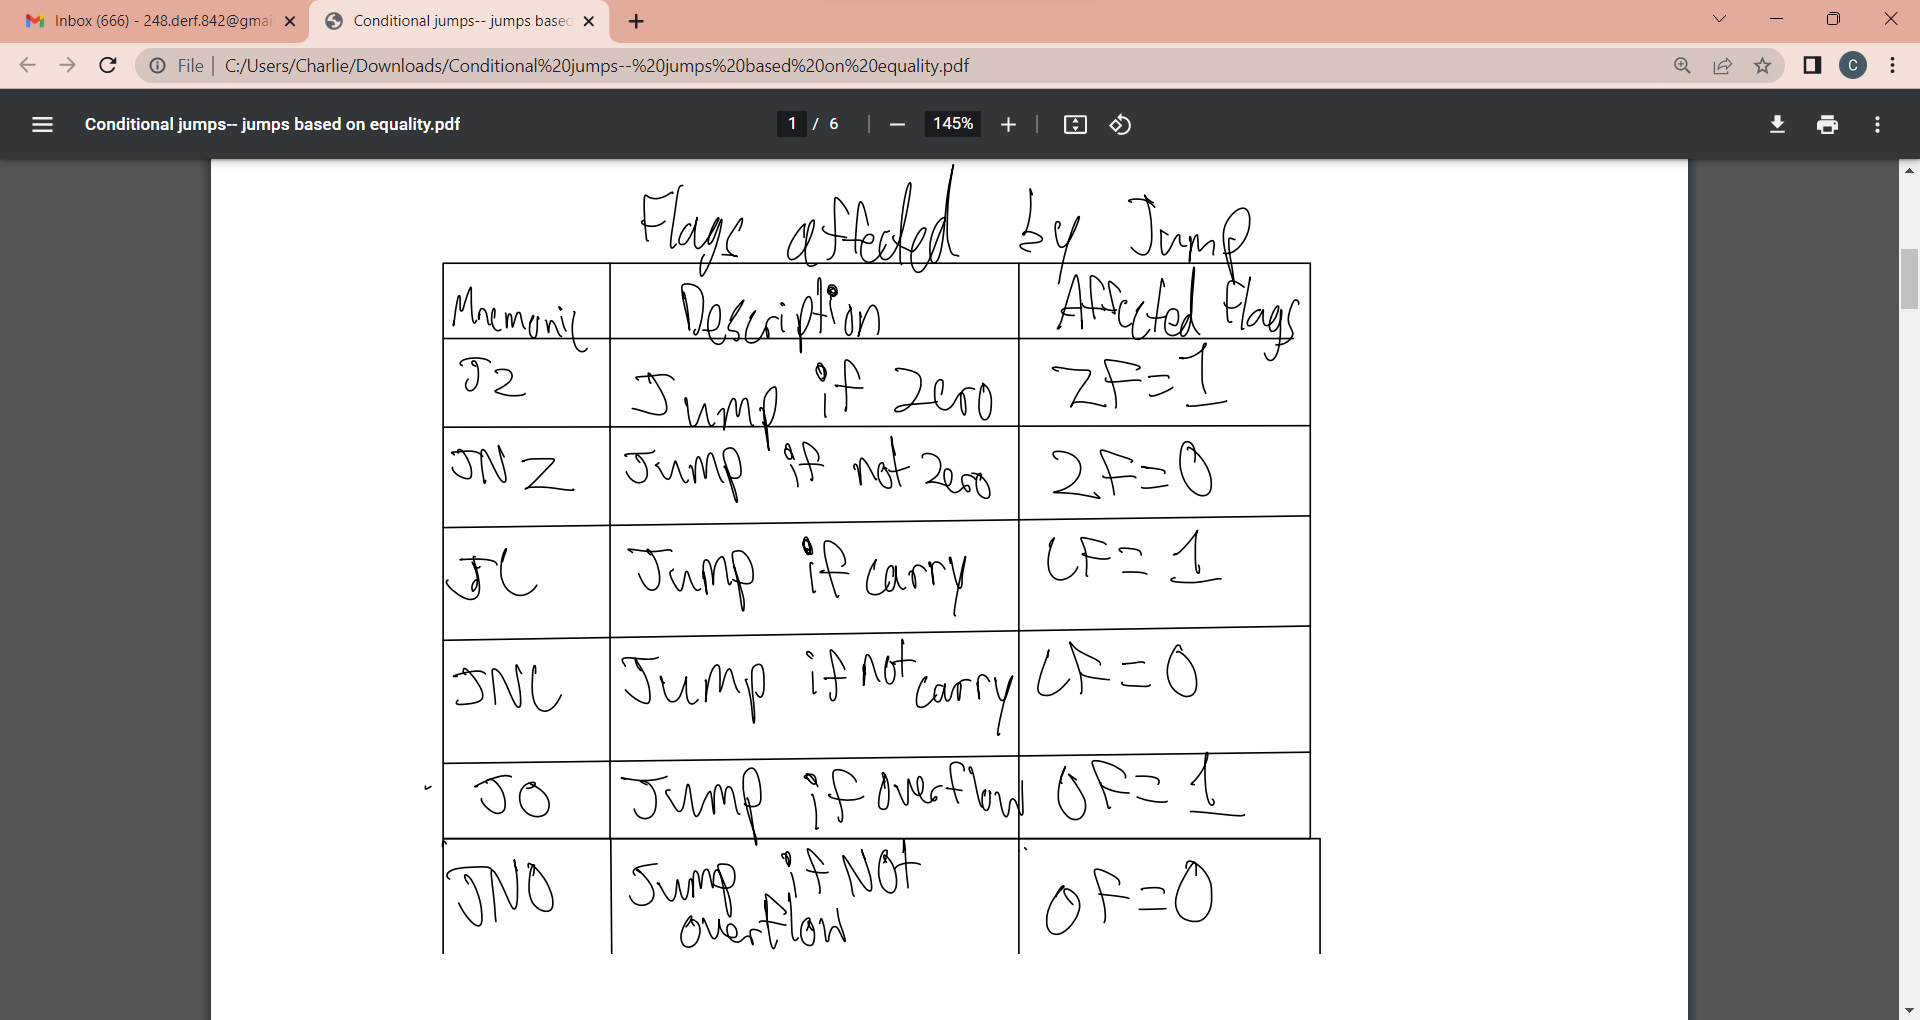 Inbox (666) - 248.derf.842@gmai
Conditional jumps-- jumps based
File | C:/Users/Charlie/Downloads/Conditional%20jumps--%20jumps%20based%20on%20equality.pdf
C
Conditional jumps-- jumps based on equality.pdf
1 / 6
145%
Flags affected by Jump
Mnemonic Description Affected Flags
JZ Jump if zero ZF=1
JNZ Jump if not zero ZF=0
JC Jump if carry CF=1
JNC Jump if not carry CF=0
JO Jump if overflow OF=1
JNO Jump if NOt OF=0
overflow